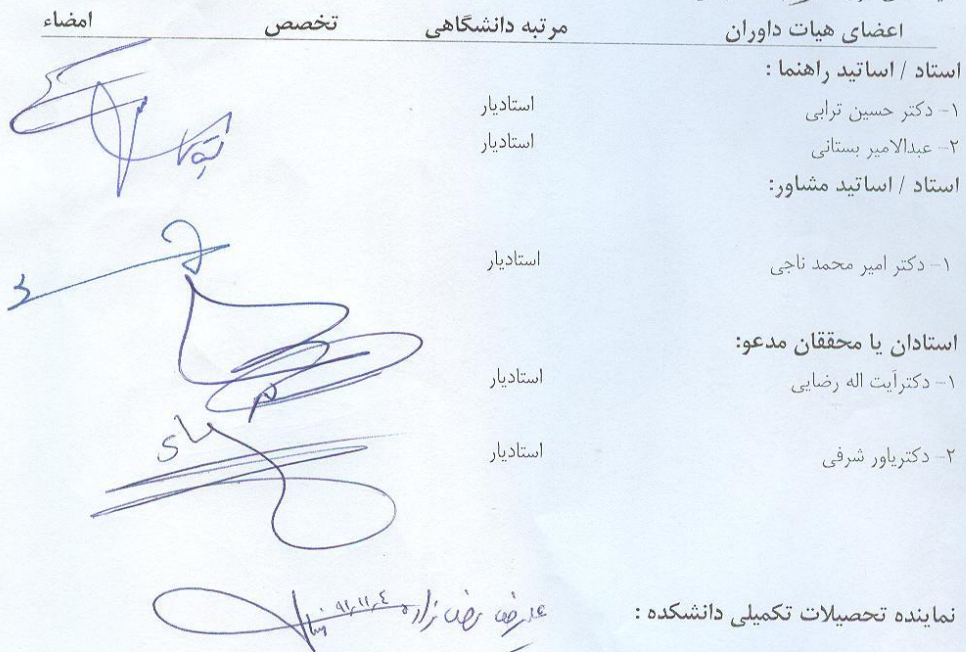 اعضای هیات داوران مرتبه دانشگاهی تخصص امضاء
استاد / اساتید راهنما :
۱- دکتر حسین ترابی استادیار
۲- عبدالامیر بستانی استادیار
استاد / اساتید مشاور:
۱- دکتر امیر محمد ناجی استادیار
استادان یا محققان مدعو:
۱- دکترآیت اله رضایی استادیار
۲- دکتریاور شرفی استادیار
نماینده تحصیلات تکمیلی دانشکده : علیرضا رضازاده ۹۱،۱۱،٤